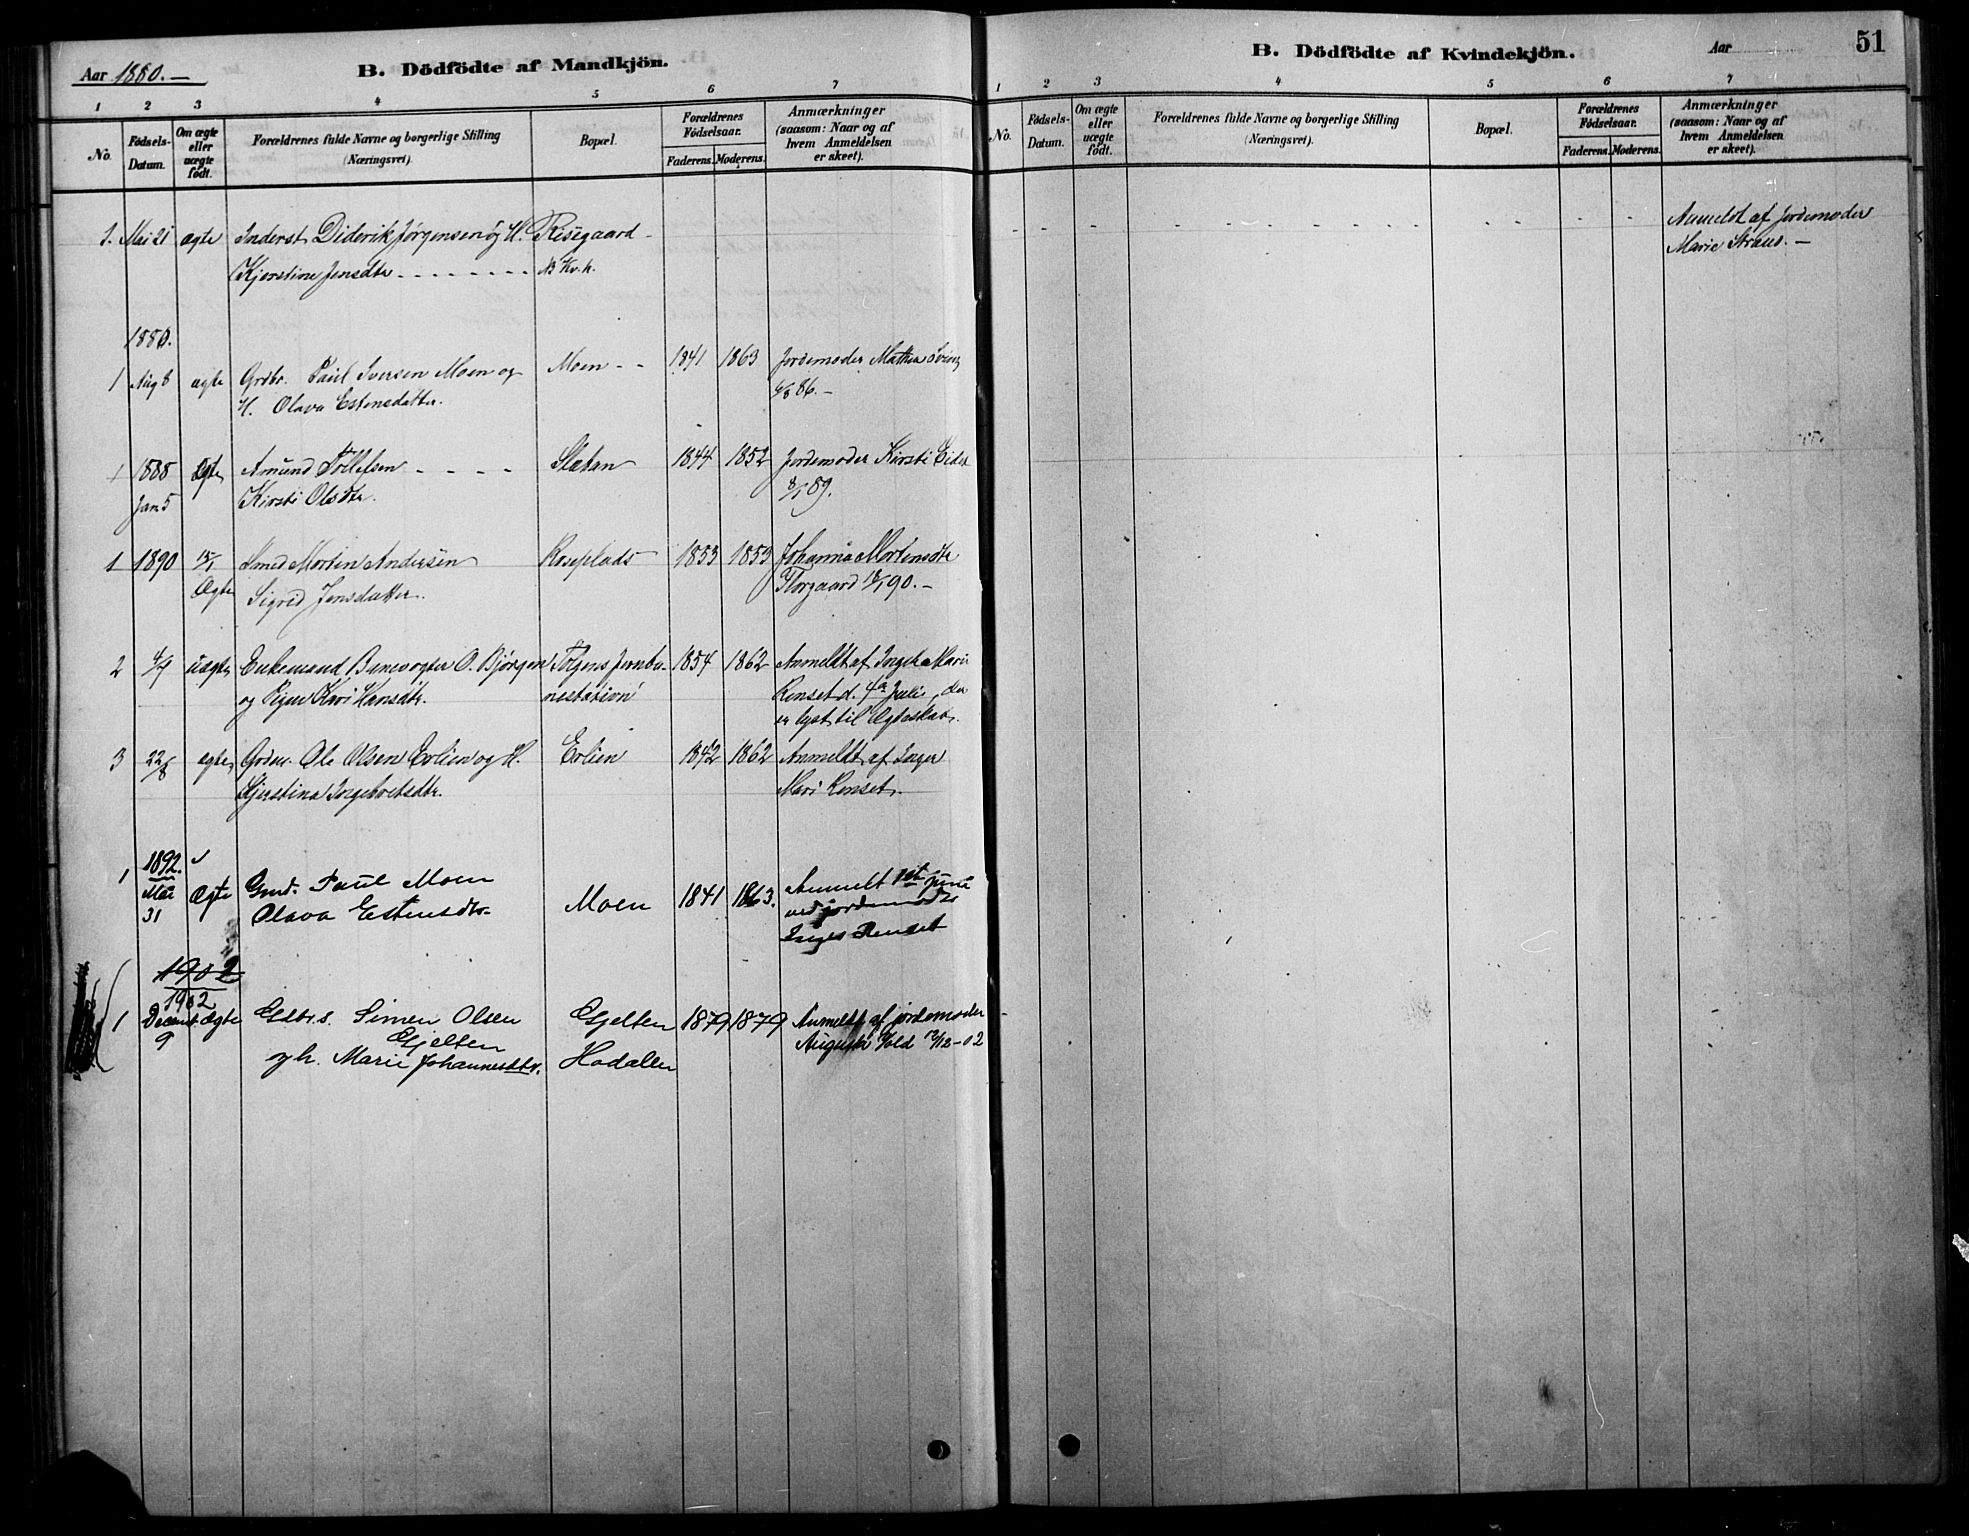 Aar 1880.—
B. Dödfödte af Mandkjön.
1 2 3 4 5 6 7
No.
Födsels-Datum.
Om ægte eller uægte födt.
Forældrenes fulde Navne og borgerlige Stilling (Næringsvei).
Bopæl.
Forældrenes Födselsaar.
Faderens. Moderens.
Anmærkninger (saasom: Naar og af hvem Anmeldelsen er skeet).
1. Mai 21 ægte Inderst Diderik Jørgensen og H. Risegaard
Kjerstine Jensdtr N Kv. h.
1886.
1 Aug 6 ægte Grdbr. Paul Iversen Moen og Moen 1841 1863 Jordemoder Mathea
H. Olava Estensdatter. 6/8 86.—
1 1888 Ægte Amund Tollefsen Slætan 1844 1852 Jordemoder Kirsti Eide
Jan 5 Kirsti Olsdtr. 8/1 89.
1 1890 15/1 Smed Morten Andersen Roseplads 1853 1859 Johanna Mortensdtr
Ægte Sigrid Jensdatter. Florgaard 18/1 90.—
2 4/7 uægte Enkemand Banevogter O. Bjørgen Tolgens Jernba- 1854 1862 Anmeldt af Ingeb. Marie
og Pigen Kari Hansdtr. nestation Renset d. 4de Julie, der
er lyst til Ægteskab.
3 22/8 ægte Grdm. Ole Olsen Erlien og H. Erlien 1842 1862 Anmeldt af Inger
Kjerstina Ingebretsdtr. Mari Renset.
1892.
1 Mai 31 Ægte Gmd. Paul Moen Moen 1841 1863. Anmeldt 1ste juni
Olava Estensdtr. ved jordemoder
Inger Renset
1902
1902
1 Decemb. 9 Ægte Gdbrs. Simen Olsen Gjelten 1879 1879 Anmeldt af jordemoder
Gjelten Augusta Vold 12/12–02
og h. Marie Johannesdtr. Hodalen
B. Dödfödte af Kvindekjön.
Aar
51
1 2 3 4 5 6 7
No.
Födsels-Datum.
Om ægte eller uægte födt.
Forældrenes fulde Navne og borgerlige Stilling (Næringsvei).
Bopæl.
Forældrenes Födselsaar.
Faderens. Moderens.
Anmærkninger (saasom: Naar og af hvem Anmeldelsen er skeet).
Anmeldt af Jordemoder
Marie Straus.—